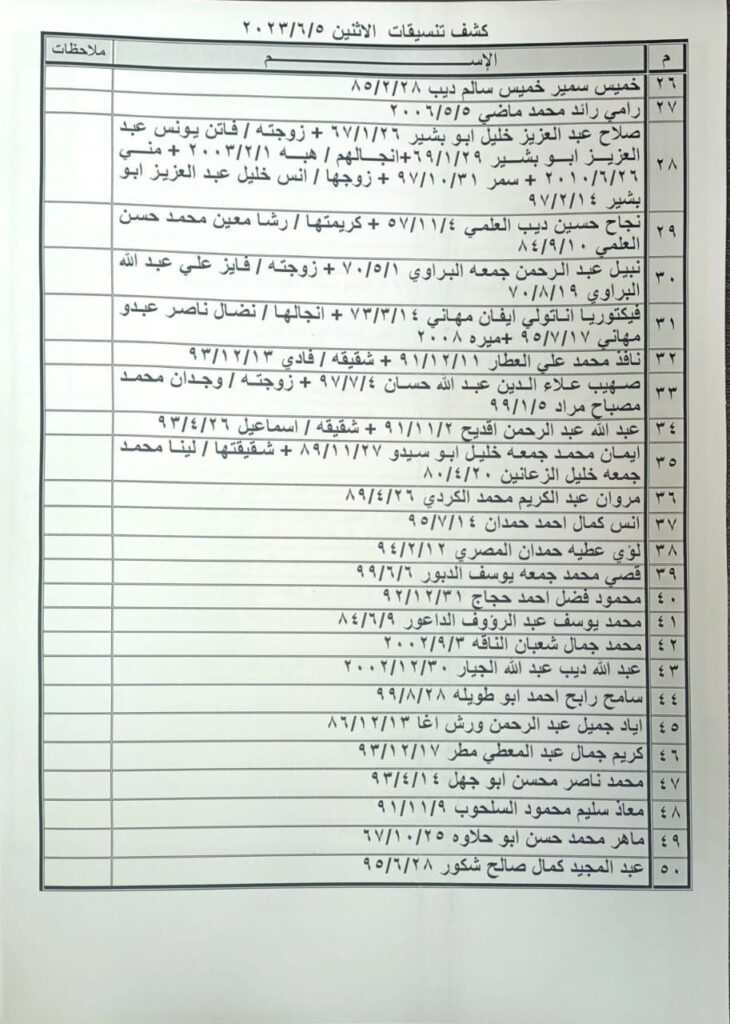 كشف تنسيقات الاثنين ٢٠٢٣/٦/٥
م الإســـم ملاحظات
٢٦ خميس سمير خميس سالم ديب ٨٥/٢/٢٨
٢٧ رامي رائد محمد ماضي ٢٠٠٦/٥/٥
٢٨ صلاح عبد العزيز خليل ابو بشير ٦٧/١/٢٦ + زوجته / فاتن يونس عبد
العزيز ابو بشير ٦٩/١/٢٩+انجالهم / هبه ٢٠٠٣/٢/١ + مني
٢٠١٠/٦/٢٦ + سمر ٩٧/١٠/٣١ + زوجها / انس خليل عبد العزيز ابو
بشير ٩٧/٢/١٤
٢٩ نجاح حسين ديب العلمي ٥٧/١١/٤ + كريمتها / رشا معين محمد حسن
العلمي ٨٤/٩/١٠
٣٠ نبيل عبد الرحمن جمعه البراوي ٧٠/٥/١ + زوجته / فايز علي عبد الله
البراوي ٧٠/٨/١٩
٣١ فيكتوريا اناتولي ايفان مهاني ٧٣/٣/١٤ + انجالها / نضال ناصر عبدو
مهاني ٩٥/٧/١٧ +ميره ٢٠٠٨
٣٢ نافذ محمد علي العطار ٩١/١٢/١١ + شقيقه / فادي ٩٣/١٢/١٣
٣٣ صهيب علاء الدين عبد الله حسان ٩٧/٧/٤ + زوجته / وجدان محمد
مصباح مراد ٩٩/١/٥
٣٤ عبد الله عبد الرحمن اقديح ٩١/١١/٢ + شقيقه / اسماعيل ٩٣/٤/٢٦
٣٥ ايمان محمد جمعه خليل ابو سيدو ٨٩/١١/٢٧ + شقيقتها / لينا محمد
جمعه خليل الزعانين ٨٠/٤/٢٠
٣٦ مروان عبد الكريم محمد الكردي ٨٩/٤/٢٦
٣٧ انس كمال احمد حمدان ٩٥/٧/١٤
٣٨ لؤي عطيه حمدان المصري ٩٤/٢/١٢
٣٩ قصي محمد جمعه يوسف الدبور ٩٩/٦/٦
٤٠ محمود فضل احمد حجاج ٩٢/١٢/٣١
٤١ محمد يوسف عبد الرؤوف الداعور ٨٤/٦/٩
٤٢ محمد جمال شعبان الناقه ٢٠٠٢/٩/٣
٤٣ عبد الله ديب عبد الله الجيار ٢٠٠٢/١٢/٣٠
٤٤ سامح رابح احمد ابو طويله ٩٩/٨/٢٨
٤٥ اياد جميل عبد الرحمن ورش اغا ٨٦/١٢/١٣
٤٦ كريم جمال عبد المعطي مطر ٩٣/١٢/١٧
٤٧ محمد ناصر محسن ابو جهل ٩٣/٤/١٤
٤٨ معاذ سليم محمود السلحوب ٩١/١١/٩
٤٩ ماهر محمد حسن ابو حلاوه ٦٧/١٠/٢٥
٥٠ عبد المجيد كمال صالح شكور ٩٥/٦/٢٨